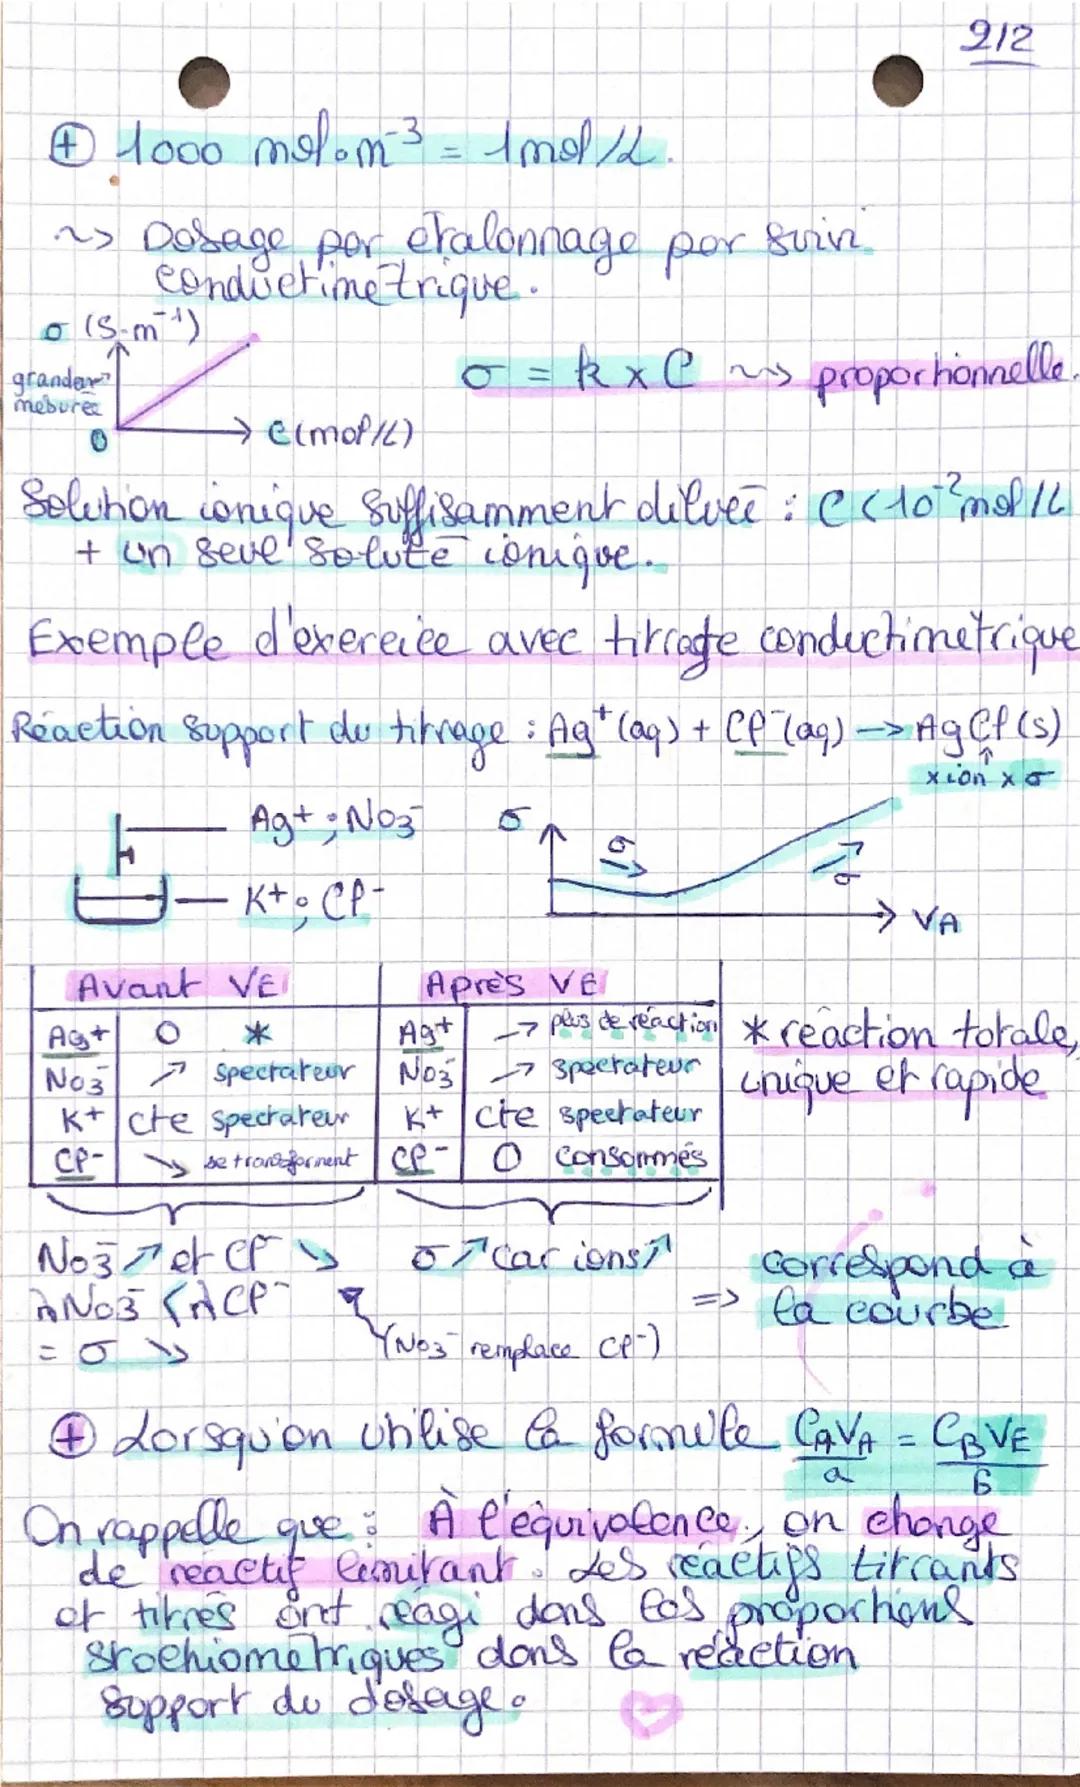 2/2
⊕ 1000 mol.m⁻³ = 1mol/L.
~> Dosage par étalonnage par suivi
conductimétrique.
σ (S.m⁻¹)
grandeur
mesurée
0
C(mol/L)
σ = k x C ~> proportionnelle.
Solution ionique suffisamment diluée : C < 10⁻² mol/L
+ un seul soluté ionique.
Exemple d'exercice avec titrage conductimétrique
Réaction support du titrage : Ag⁺(aq) + Cl⁻(aq) -> AgCl(s)
↑
x ion x σ
Ag+ ; NO3⁻
K+ ; Cl-
σ
σ
σ
VA
Avant VE Après VE
Ag+ 0 * Ag+ ↗ plus de réaction
NO3⁻ ↗ spectateur NO3⁻ ↗ spectateur
K+ cte spectateur K+ cte spectateur
Cl- ↘ se transforment Cl- 0 consommés
* réaction totale,
unique et rapide
NO3⁻ ↗ et Cl⁻ ↘
λNO3⁻ < λCl⁻
= σ ↘
(NO3⁻ remplace Cl-)
σ ↗ car ions ↗
=> correspond à
la courbe
⊕ Lorsqu'on utilise la formule CAVA/a = CBVE/b
On rappelle que : À l'équivalence, on change
de réactif limitant. Les réactifs titrants
et titrés ont réagi dans les proportions
stoechiométriques dans la réaction
support du dosage.